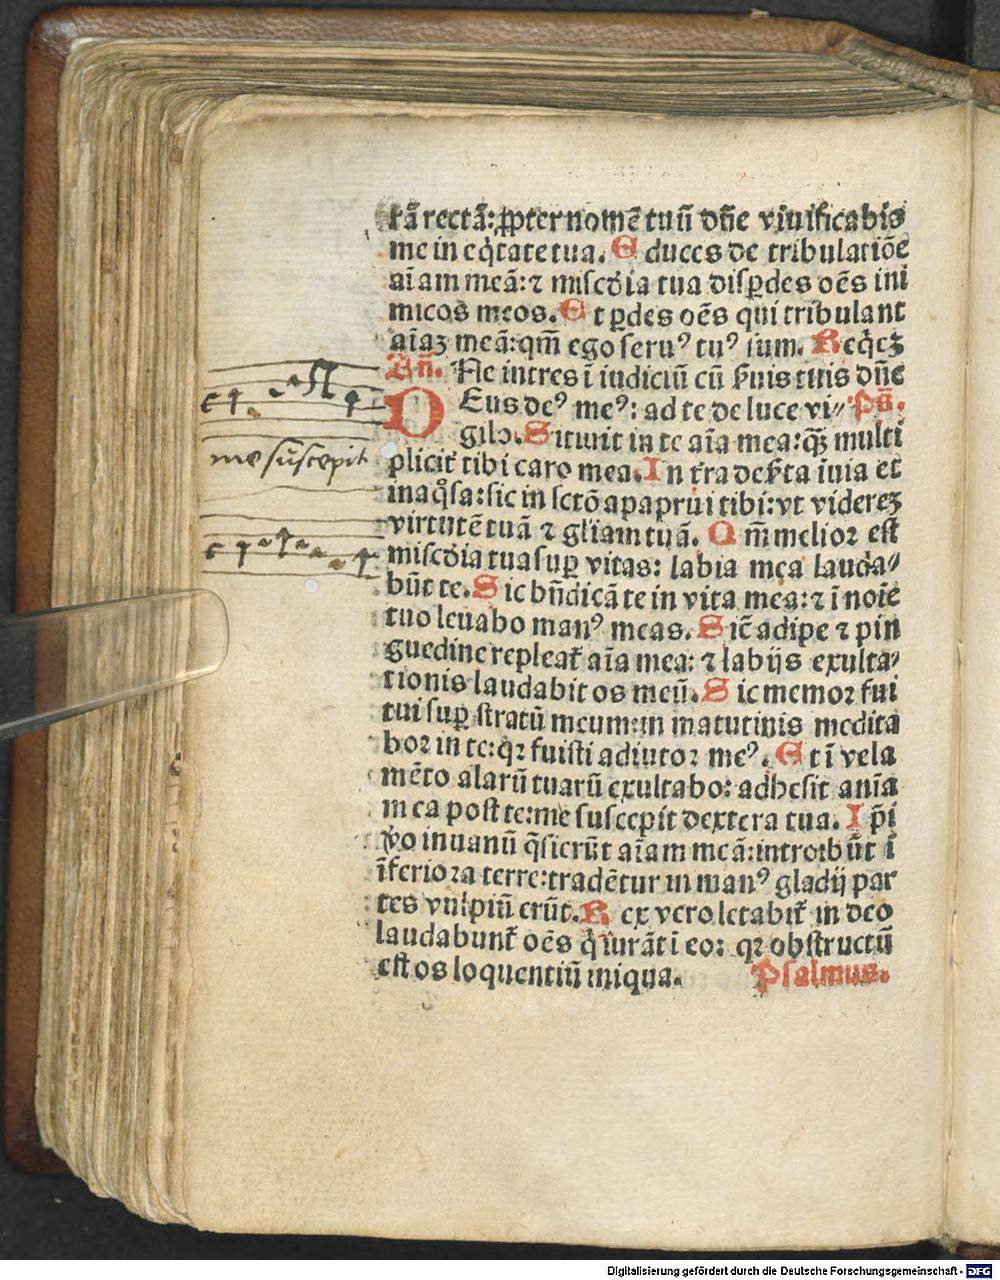 rã rectã: ꝓpter nomẽ tuũ dñe viuificabis
me in eq̇tate tua. E duces de tribulatiõe
aĩam meã: ⁊ miscd̓ia tua disꝑdes oẽs ini
micos meos. E t ꝑdes oẽs qui tribulant
aĩaꝫ meã: qm̃ ego seruꝰ tuꝰ sum. Req̇eꝫ
Añ. Ne intres ĩ iudiciũ cũ ẜuis tuis dñe
D Eus deꝰ meꝰ: ad te de luce vi⸗ Ps̃.
gilo. S itiuit in te aĩa mea: qꝫ̃ multi
plicit᷑ tibi caro mea. I n t̃ra deẜta ĩuia et
inaq̊sa: sic in sctõ apaprui tibi: vt viderẽ
virtutẽ tuã ⁊ gl̃iam tuã. Q m̃ melioꝛ est
miscd̓ia tua suꝑ vitas: labia mea lauda⸗
bũt te. S ic bñdicã te in vita mea: ⁊ ĩ noĩe
tuo leuabo manꝰ meas. S ic̃ adipe ⁊ pin
guedine repleat᷑ aĩa mea: ⁊ labijs exulta⸗
tionis laudabit os meũ. S ic memoꝛ fui
tui suꝑ stratũ meum: in matutinis medita
boꝛ in te: qꝛ fuisti adiutoꝛ meꝰ. E t ĩ vela
mẽto alarũ tuarũ exultabo: adhesit anĩa
mea post te: me suscepit dextera tua. I p̃i
v̓o inuanũ q̃sierũt aĩam meã: introibũt ĩ
ĩferioꝛa terre: tradẽtur in manꝰ gladij par
tes vulpiũ erũt. R ex vero letabit᷑ in deo
laudabunt᷑ oẽs q̇ iurãt ĩ eo: qꝛ obstructũ
est os loquentiũ iniqua. Psalmus.
me suscepit